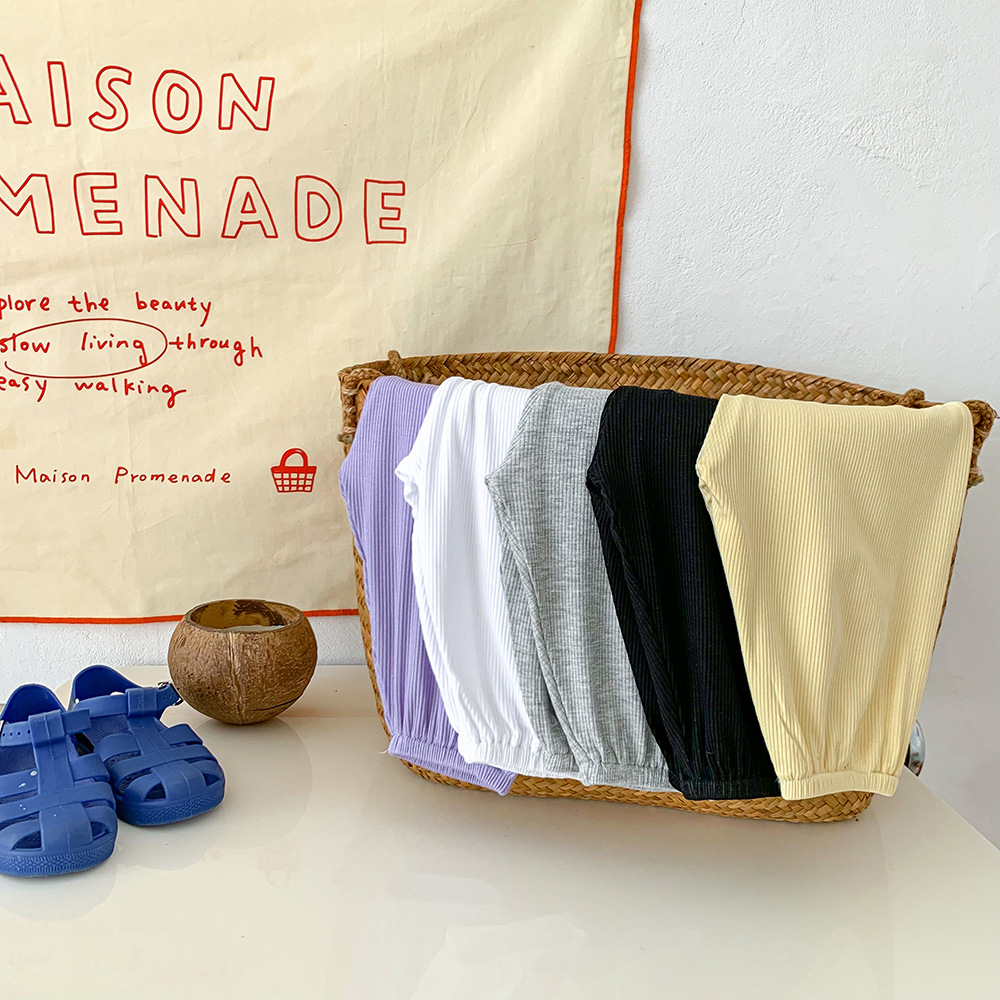 AISON
MENADE
plore the beauty
slow living through
easy walking
Maison Promenade